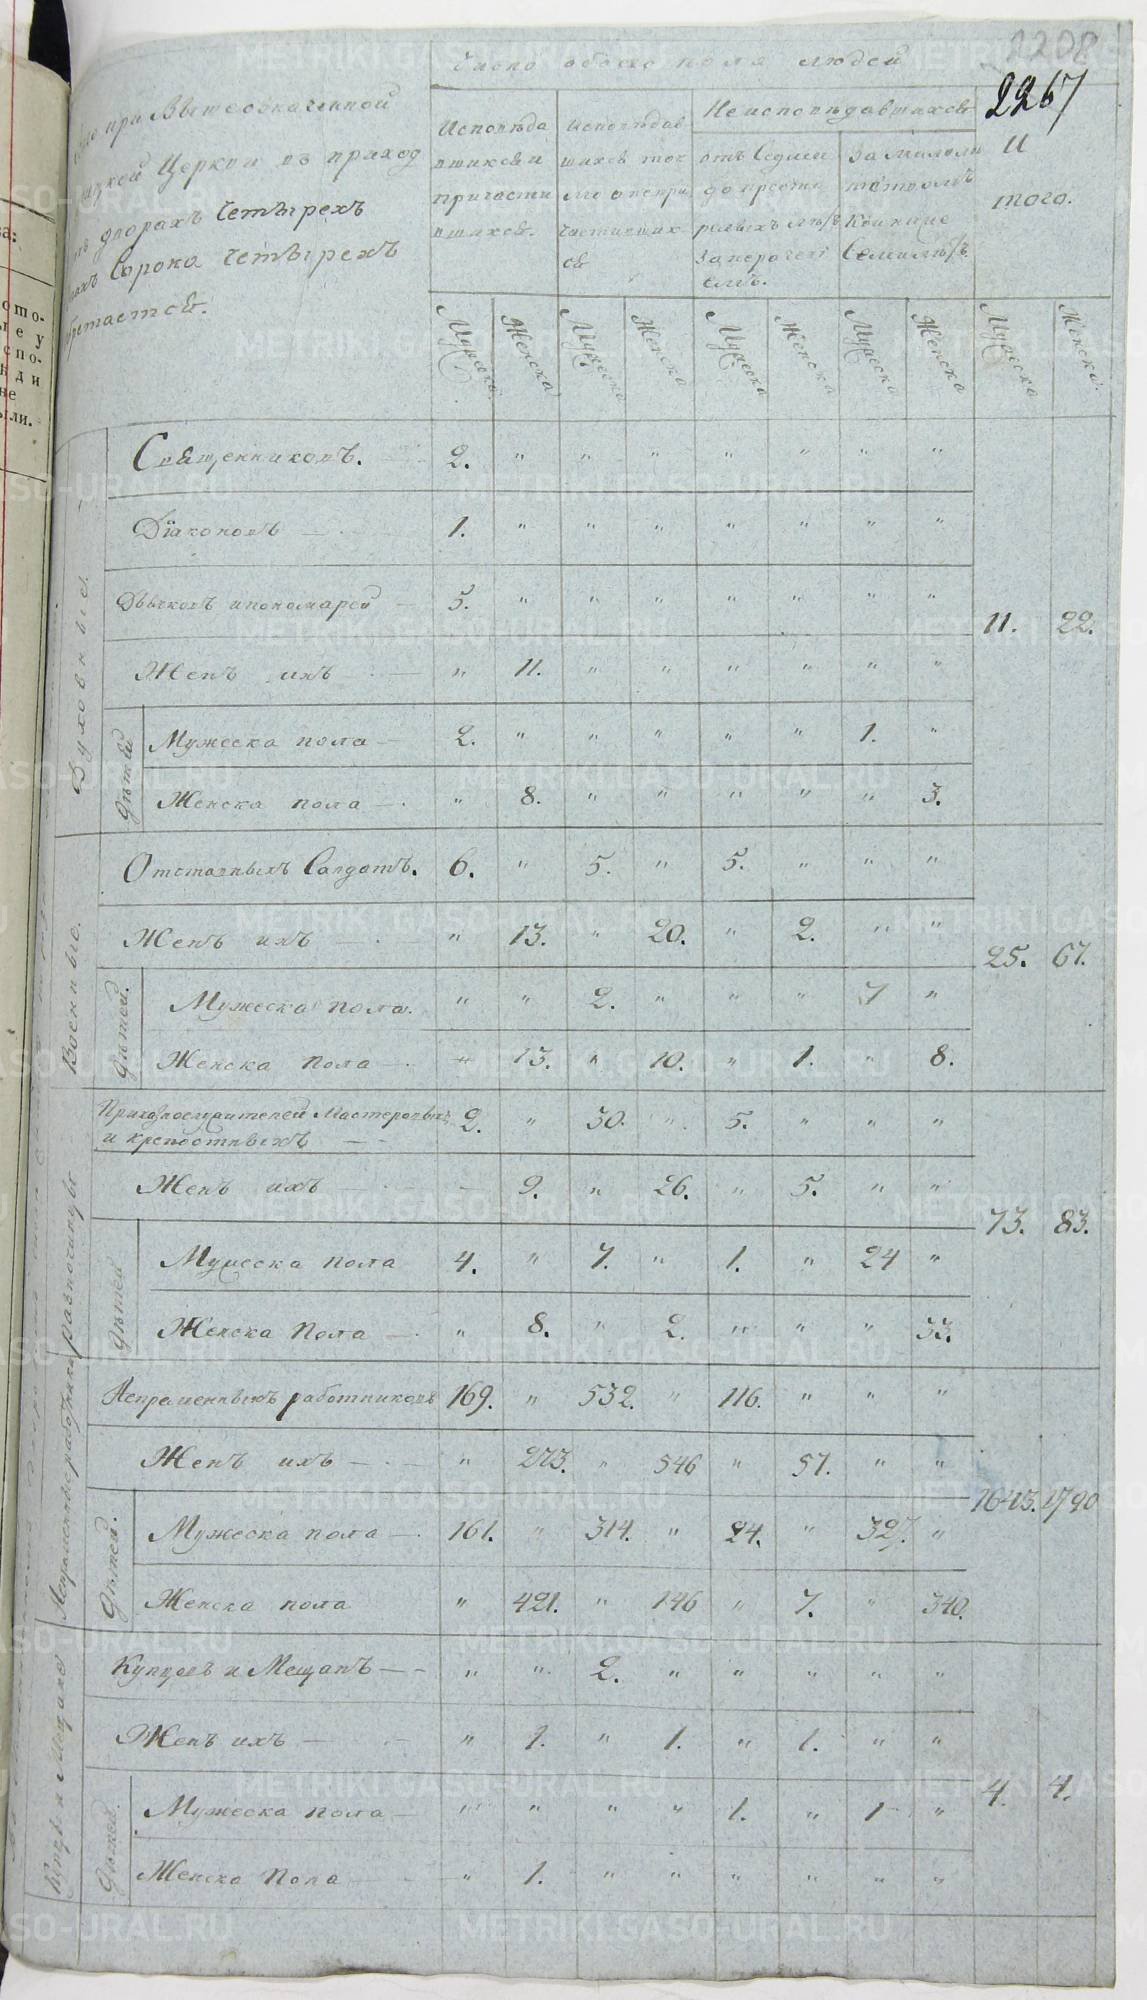 2208
2267
Число обоего пола людей
при Вышеозначенной
Церкви въ приход
дворахъ Четырехъ
Сорока Четырехъ
Исповѣда
вшихся и
причасти
вшихся.
Исповѣдав
шихся
Неисповѣдавшихся
отъ Седми
до преста
релыхъ лѣтъ
за малолѣ
тствомъ
Седмилѣтъ
И
того.
Мужеска Женска Мужеска Женска Мужеска Женска Мужеска Женска Мужеска Женска
Духовные.
Священниковъ. 2. " " " " " " "
Діаконовъ 1. " " " " " " "
Дьячковъ и пономарей 5. " " " " " " " 11. 22.
Женъ ихъ " 11. " " " " " "
Дѣтей
Мужеска пола 2. " " " " " 1. "
Женска пола " 8. " " " " " 3.
Военные.
Отставныхъ Солдатъ. 6. " 5. " 5. " " "
Женъ ихъ " 13. " 20. " 2. " " 25. 67.
Дѣтей.
Мужеска пола. " " 2. " " " 7 "
Женска пола " 13. " 10. " 1. " 8.
разночинцы
Приказнослужителей Мастеровыхъ
и крепостныхъ 2. " 30. " 5. " " "
Женъ ихъ 9. " 26. " 5. " " 73. 83.
Дѣтей
Мужеска пола 4. " 7. " 1. " 24 "
Женска Пола " 8. " 2. " " " 33.
Непременныхъ работниковъ 169. " 532. " 116. " " "
Женъ ихъ " 273. " 546 " 57. " " 1643. 1790
Дѣтей.
Мужеска пола 161. " 314. " 24. " 327. "
Женска пола " 421. " 146 " 7. " 340.
Купцы и Мещане
Купцовъ и Мещанъ " " 2. " " " " "
Женъ ихъ " 1. " 1. " 1. " "
Дѣтей.
Мужеска пола " " " " 1. " 1 " 4. 4.
Женска Пола " 1. " " " " " "
METRIKI.GASO-URAL.RU